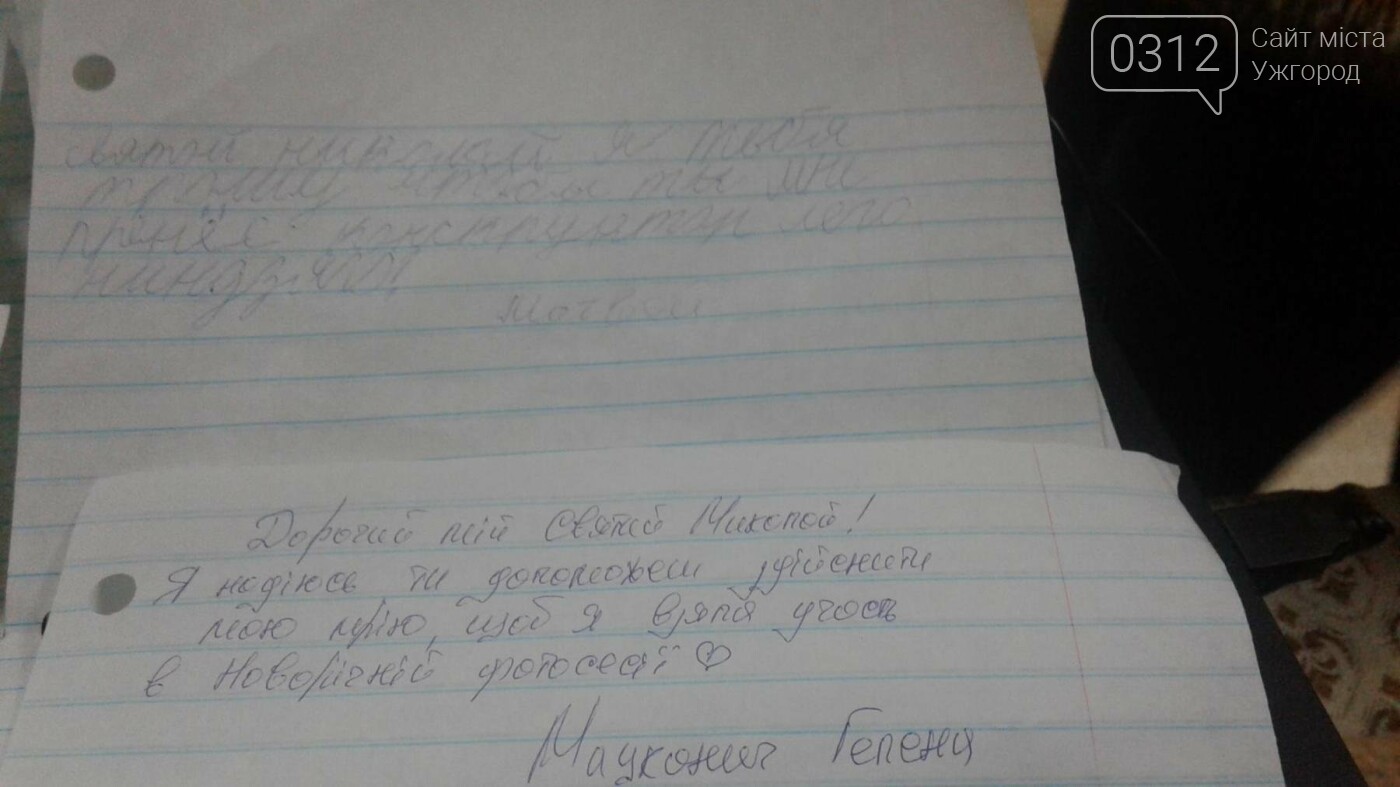 0312
Сайт міста
Ужгород
святой николай я тебя
прошу чтобы ты мне
принёс конструктор лего
ниндзяго
Матвей
Дорогий мій Святий Миколай!
Я надіюсь, ти допоможеш здійснити
мою мрію, щоб я взяла участь
в Новорічній фотосесії ♡
Гелена